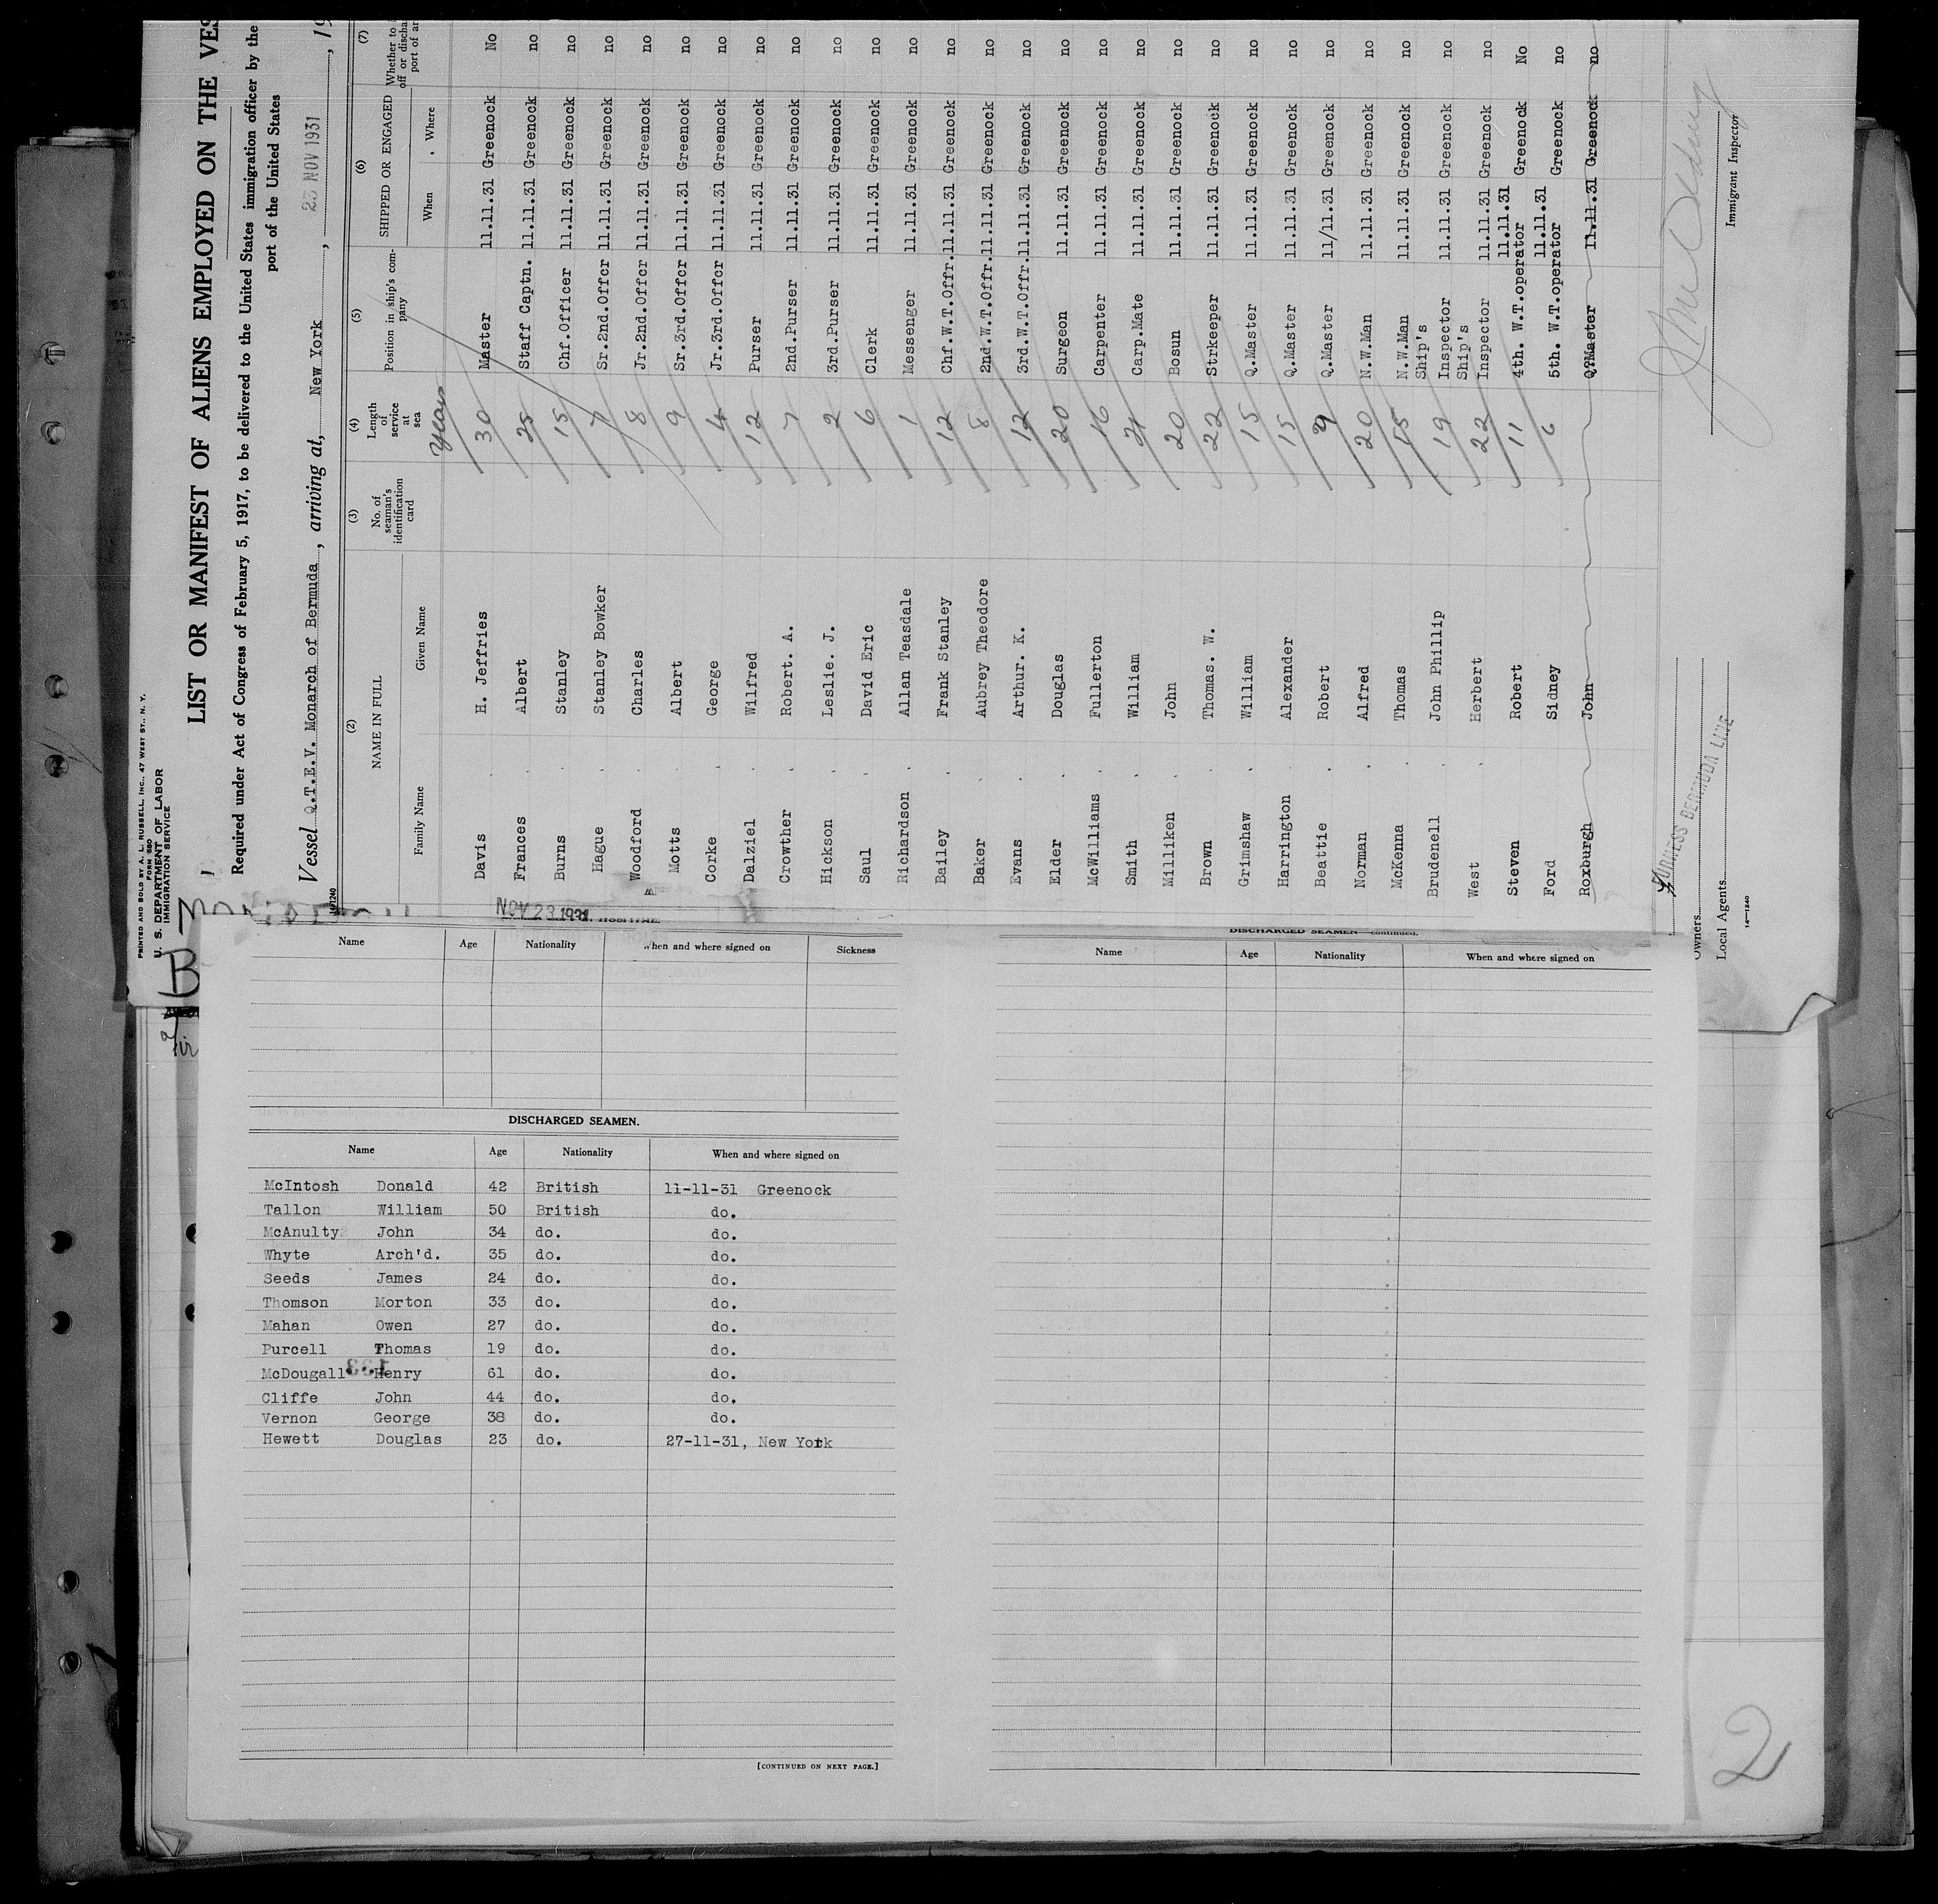 PRINTED AND SOLD BY A. L. RUSSELL, INC., 47 WEST ST., N. Y.
FORM 680
U. S. DEPARTMENT OF LABOR
IMMIGRATION SERVICE
LIST OR MANIFEST OF ALIENS EMPLOYED ON THE VES
Required under Act of Congress of February 5, 1917, to be delivered to the United States immigration officer by the
port of the United States
Vessel Q.T.E.V. Monarch of Bermuda, arriving at, New York, 23 NOV 1931, 19
(2) (3) (4) (5) (6) (7)
NAME IN FULL No. of seaman's identification card Length of service at sea Position in ship's company SHIPPED OR ENGAGED Whether to off or discha port of ar
Family Name Given Name When Where
Years
Davis H. Jeffries 30 Master 11.11.31 Greenock No
Frances Albert 25 Staff Captn. 11.11.31 Greenock no
Burns Stanley 15 Chf.Officer 11.11.31 Greenock no
Hague Stanley Bowker 7 Sr.2nd.Offcr 11.11.31 Greenock no
Woodford Charles 8 Jr.2nd.Offcr 11.11.31 Greenock no
Motts Albert 9 Sr.3rd.Offcr 11.11.31 Greenock no
Corke George 4 Jr.3rd.Offcr 11.11.31 Greenock no
Dalziel Wilfred 12 Purser 11.11.31 Greenock no
Crowther Robert. A. 7 2nd.Purser 11.11.31 Greenock no
Hickson Leslie. J. 2 3rd.Purser 11.11.31 Greenock no
Saul David Eric 6 Clerk 11.11.31 Greenock no
Richardson Allan Teasdale 1 Messenger 11.11.31 Greenock no
Bailey Frank Stanley 12 Chf.W.T.Offr. 11.11.31 Greenock no
Baker Aubrey Theodore 8 2nd.W.T.Offr. 11.11.31 Greenock no
Evans Arthur. K. 12 3rd.W.T.Offr. 11.11.31 Greenock no
Elder Douglas 20 Surgeon 11.11.31 Greenock no
McWilliams Fullerton 16 Carpenter 11.11.31 Greenock no
Smith William 21 Carp.Mate 11.11.31 Greenock no
Milliken John 20 Bosun 11.11.31 Greenock no
Brown Thomas. W. 22 Strkeeper 11.11.31 Greenock no
Grimshaw William 15 Q.Master 11.11.31 Greenock no
Harrington Alexander 15 Q.Master 11.11.31 Greenock no
Beattie Robert Q.Master 11/11.31 Greenock no
Norman Alfred 20 N.W.Man 11.11.31 Greenock no
McKenna Thomas 15 N.W.Man 11.11.31 Greenock no
Brudenell John Phillip 19 Ship's Inspector 11.11.31 Greenock no
West Herbert 22 Ship's Inspector 11.11.31 Greenock no
Steven Robert 11 4th. W.T.operator 11.11.31 Greenock No
Ford Sidney 6 5th. W.T.operator 11.11.31 Greenock no
Roxburgh John Q?Master 11.11.31 Greenock no
Immigrant Inspector
Owners
FURNESS BERMUDA LINE
Local Agents
14—1240
NOV 23 1931
Name Age Nationality When and where signed on Sickness
DISCHARGED SEAMEN.
Name Age Nationality When and where signed on
McIntosh Donald 42 British 11-11-31 Greenock
Tallon William 50 British do.
McAnulty John 34 do. do.
Whyte Arch'd. 35 do. do.
Seeds James 24 do. do.
Thomson Morton 33 do. do.
Mahan Owen 27 do. do.
Purcell Thomas 19 do. do.
McDougall Henry 61 do. do.
Cliffe John 44 do. do.
Vernon George 38 do. do.
Hewett Douglas 23 do. 27-11-31, New York
[CONTINUED ON NEXT PAGE.]
DISCHARGED SEAMEN—continued.
Name Age Nationality When and where signed on
2